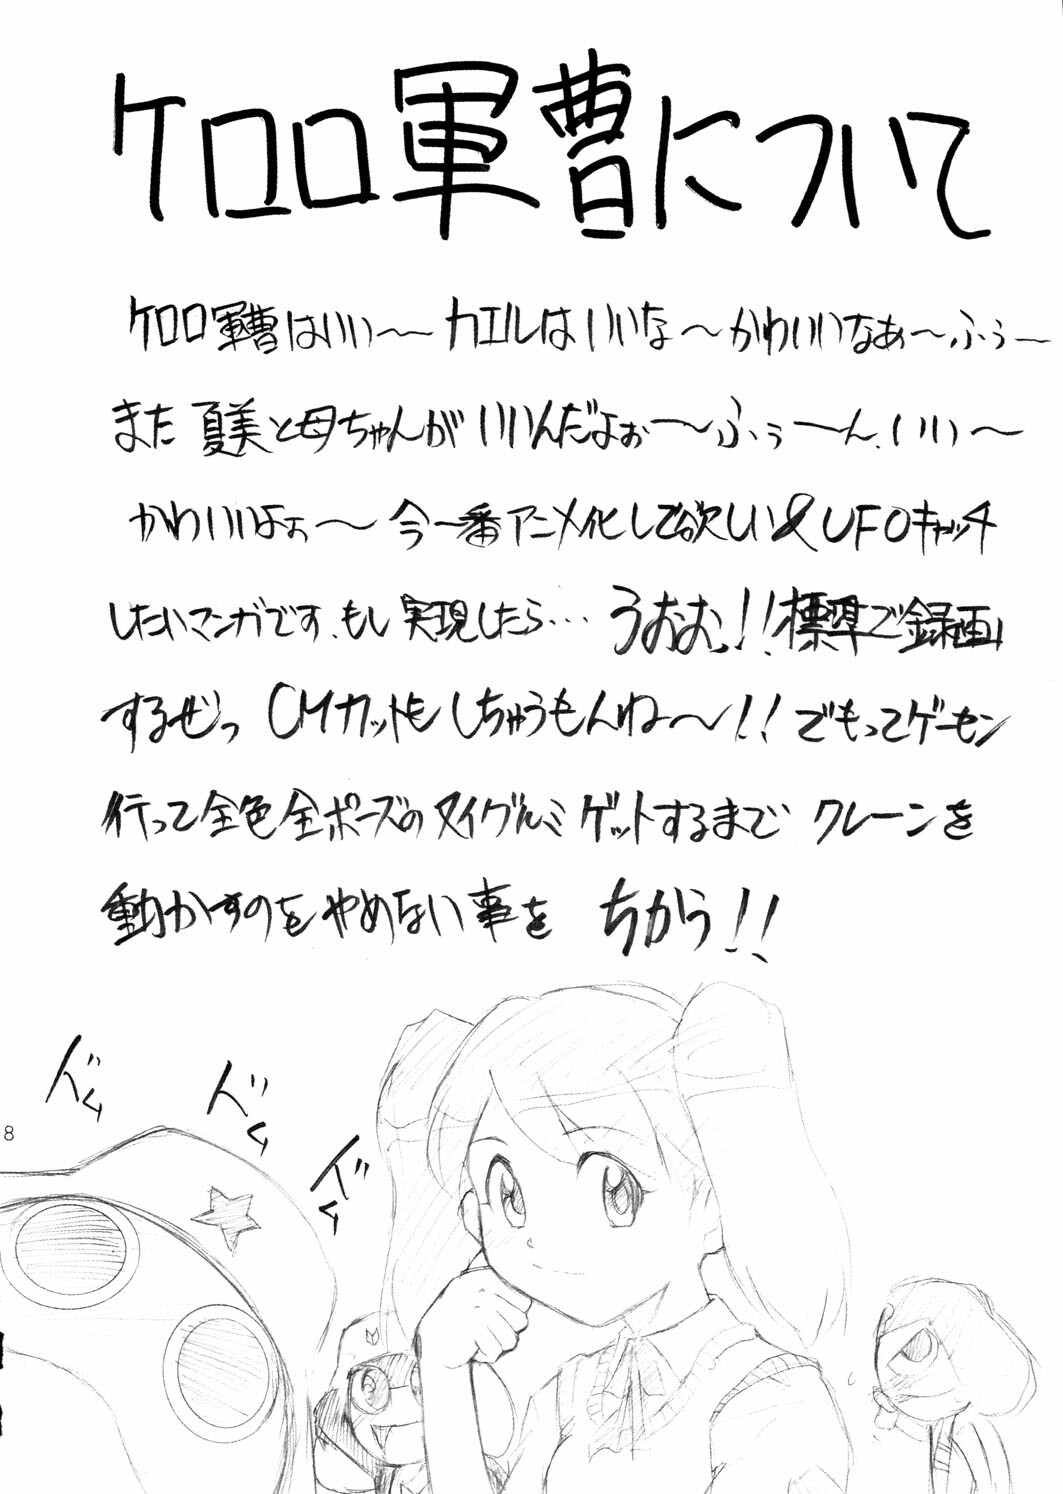 ケロロ軍曹について
ケロロ軍曹はいい〜カエルはいいな〜かわいいなぁ〜ふぅ〜
また夏美と母ちゃんがいいんだよぉ〜ふぅーん、いい〜
かわいいよぉ〜今一番アニメ化して欲しい&UFOキャッチ
したいマンガです、もし実現したら…うおお!!標準で録画
するぜっ CMカットもしちゃうもんね〜!!でもってゲーセン
行って全色全ポーズのヌイグルミゲットするまでクレーンを
動かすのをやめない事を ちかう!!
ドく
ドく
ドく
8